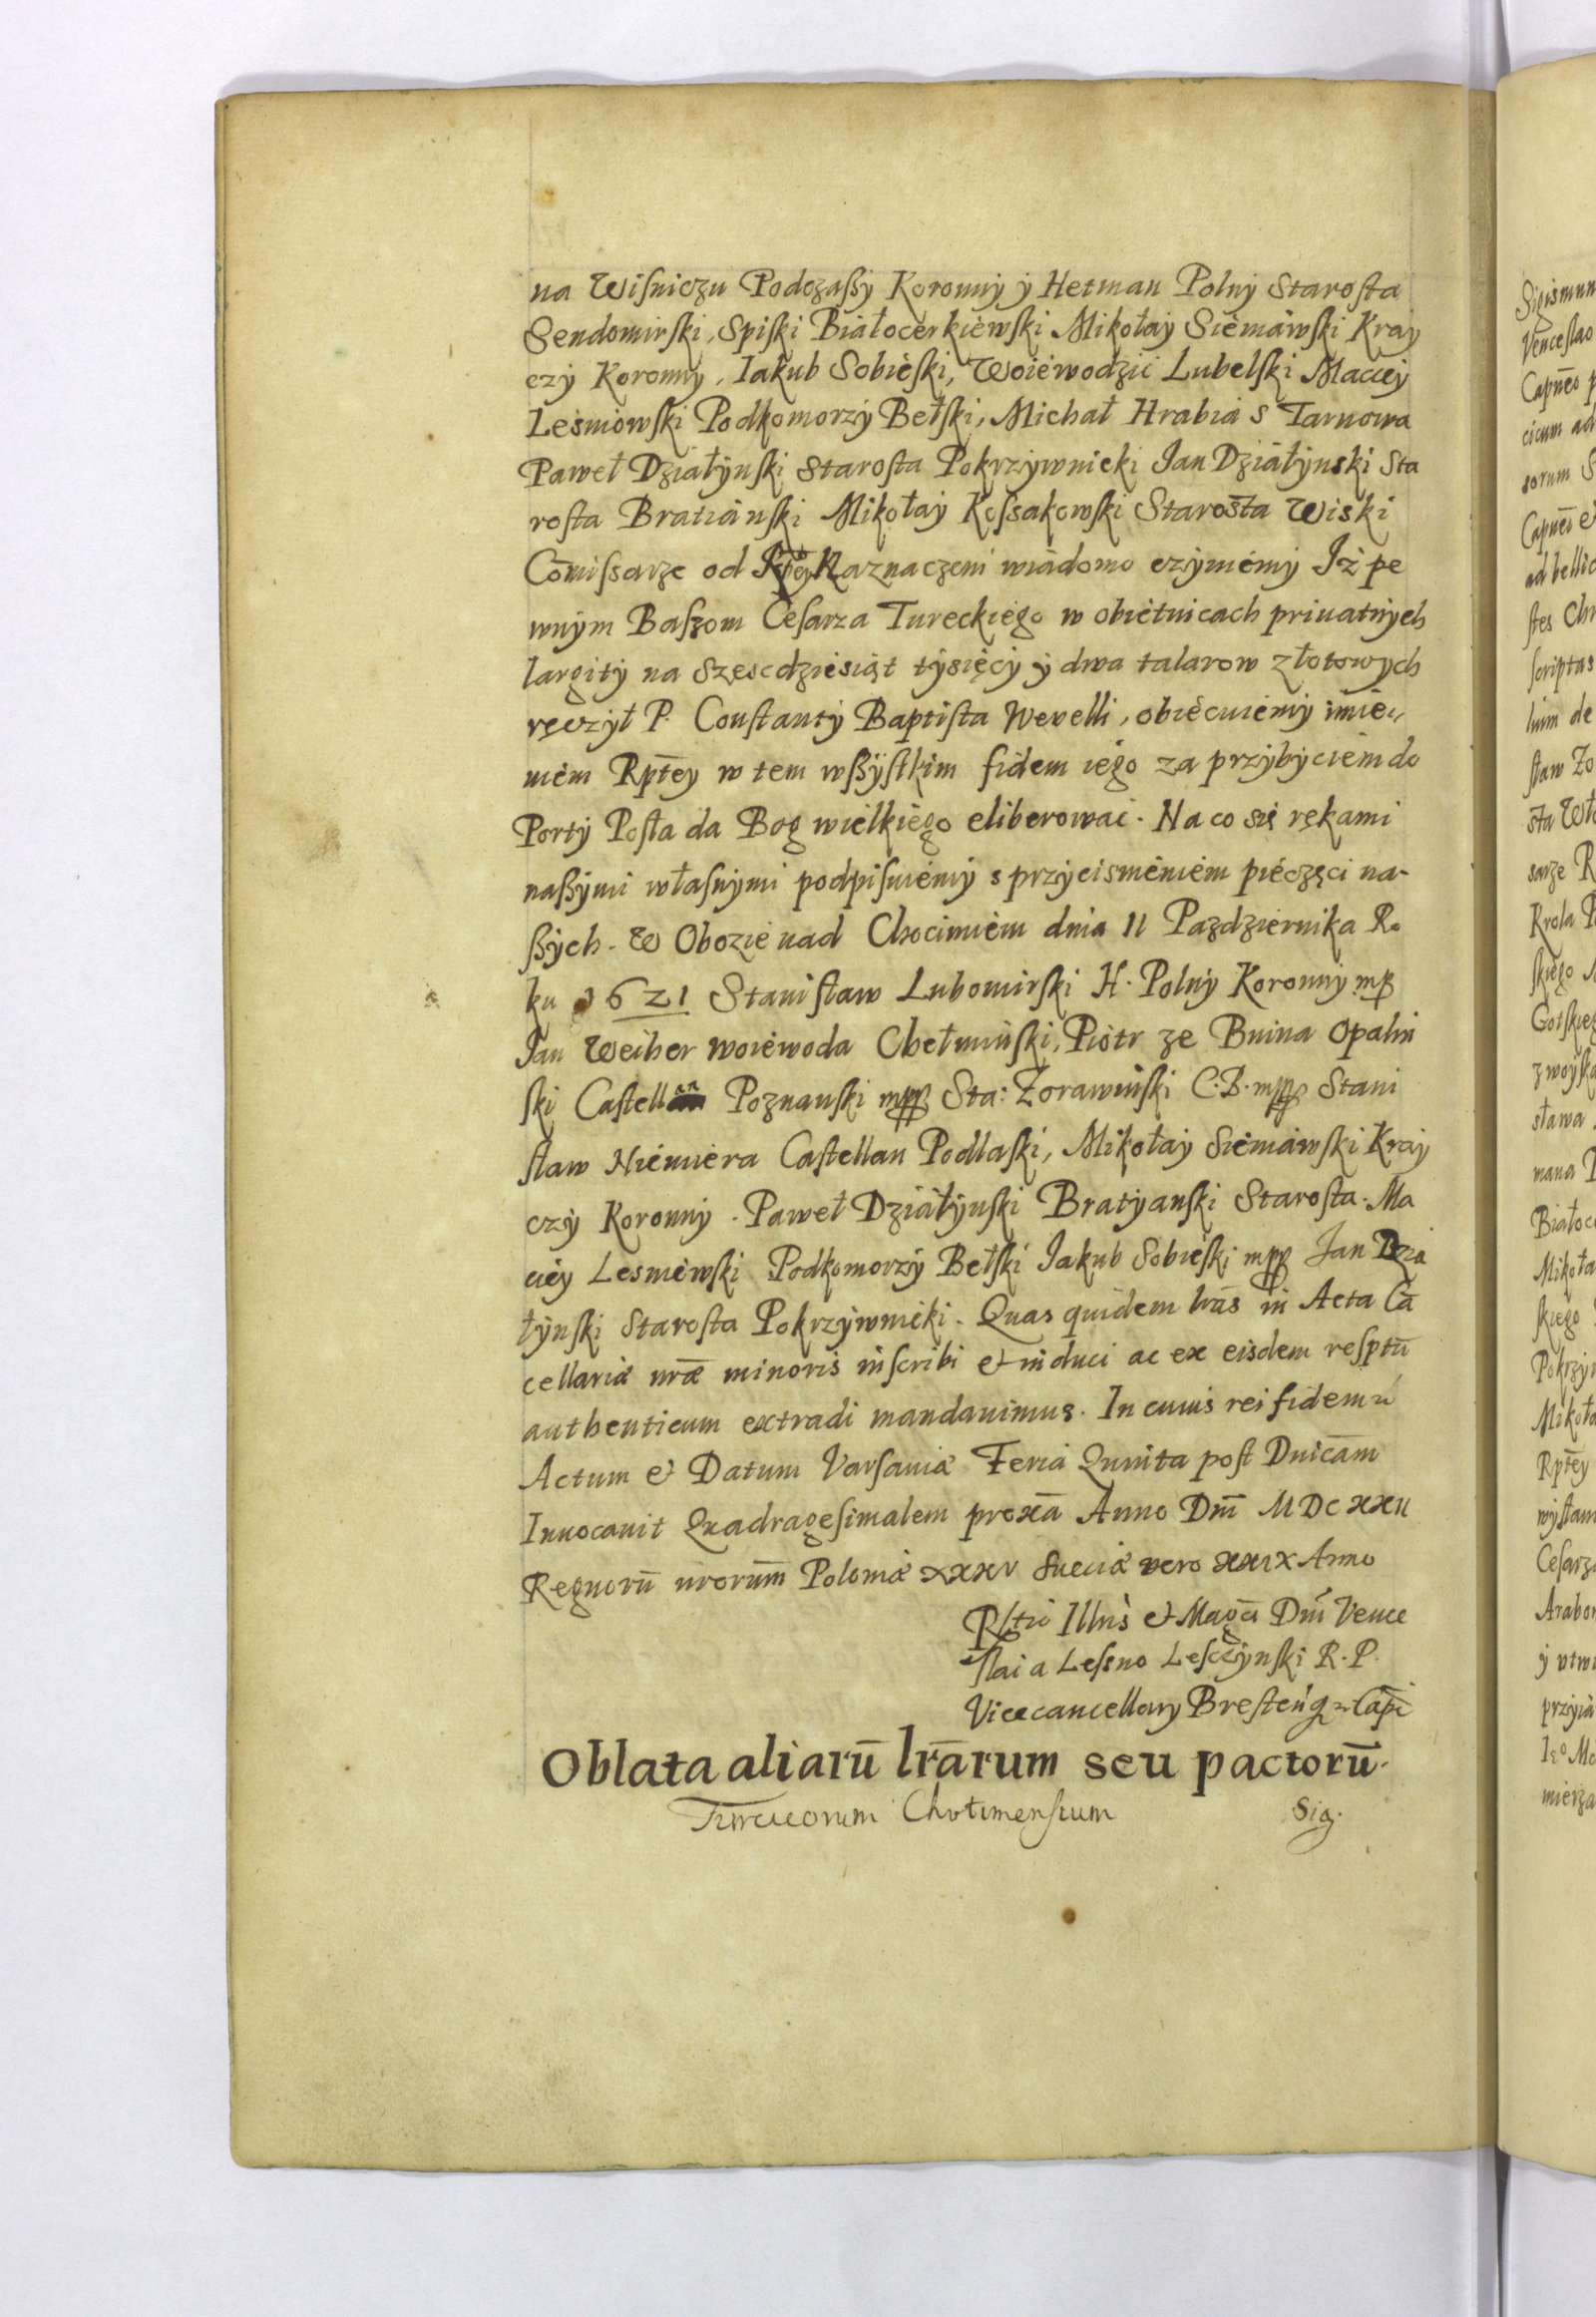 na Wiſniczu Podczaßÿ Koronnÿ ÿ Hetman Polnÿ Staroſta
Sendomirſki, Spiſki Białocerkiewſki Mikołaÿ Sièniawſki Kraÿ
czÿ Koronnÿ, Iakub Sobièſki, Woièwodzic Lubelſki Macieÿ
Leśniowſki Podkomorzÿ Bełſki, Michał Hrabià s Tarnowa
Paweł Działÿnſki Staroſta Pokrzÿwnicki Ian Działÿnski Sta
roſta Bratiànſki Mikołaÿ Koſsakowſki Staroſta Wiski
Com̄iſsarze od Rptēÿ Naznaczeni wiàdomo czÿnièmÿ Iż pe
wnÿm Baſzom Ceſarza Tureckièġo w obiètnicach priuatnÿch
largitÿ na Szescdzièsiąt tÿsięcÿ ÿ dwa talarow złotowÿch
ręczÿł P. Conſtantÿ Baptiſta Wevelli, obiècuièmÿ imiè⸗
nièm Rptēy w tem wßÿſtkim fidem ièġo za przÿbÿcièm do
Portÿ Poſła da Bog wielkièġo eliberowac. Na co się rękami
naßÿmi właſnÿmi podpiſuièmÿ s przÿciśnienièm pièczęci na-
ßÿch. W Obozie nad Chocimièm dnia 11 Pazdziernika Ro
ku 1621 Staniſław Lubomirſki H. Polnÿ Koronnÿ mp
Jan Weiher woièwoda Chełminſki, Piotr ze Bnina Opalin
ſki Caſtellan Poznanſki mpp Sta: Zorawinſki C.B. mpp Stani
ſław Niemiera Caſtellan Podlaſki, Mikołaÿ Sièniawſki Kraÿ
czÿ Koronnÿ. Paweł Działÿnſki Bratyanſki Staroſta. Ma
cièy Lesnièwſki Podkomorzÿ Bełſki Jakub Sobièſki mpp Jan Dzia
łÿnſki Staroſta Pokrzÿwnicki. Quas quidem lrās in Acta Cā
cellariæ nrǣ minoris inſcribi et induci ac ex eisdem reſptū
authenticum extradi mandauimus. In cuius rei fidem
Actum et Datum Varſauiæ Feria Quinta poſt Dnicām
Inuocauit Quadrageſimalem proxā Anno Dnī MDCXXII
Regnorū nrorum̄ Poloniæ XXXV Sueciæ vero XXIX Anno
Rltio Illris et Magci Dnī Vence
ſlai a Leſsno Leſczÿnſki R. P.
Vicecancellary Breſten Capī
Oblata aliarū lrārum seu pactorū.
Turcicorum Chotimenſium Sig.
Sigismun
Venceſlao
Capnēo p
cicum ad
sorum S
Capnēi e
ad bellic
ſtes Chr
ſcriptas
lium de
ſław Zo
sta Wło
sarze R
Krola P
ſkiègo
Gotſkieg
z woÿſka
sława
mana P
Białoce
Mikoła
ſkiègo
Pokrzÿ
Mikoła
Rptēy
wÿſław
Ceſarz
Arabo
ÿ utw
przÿià
mièrza